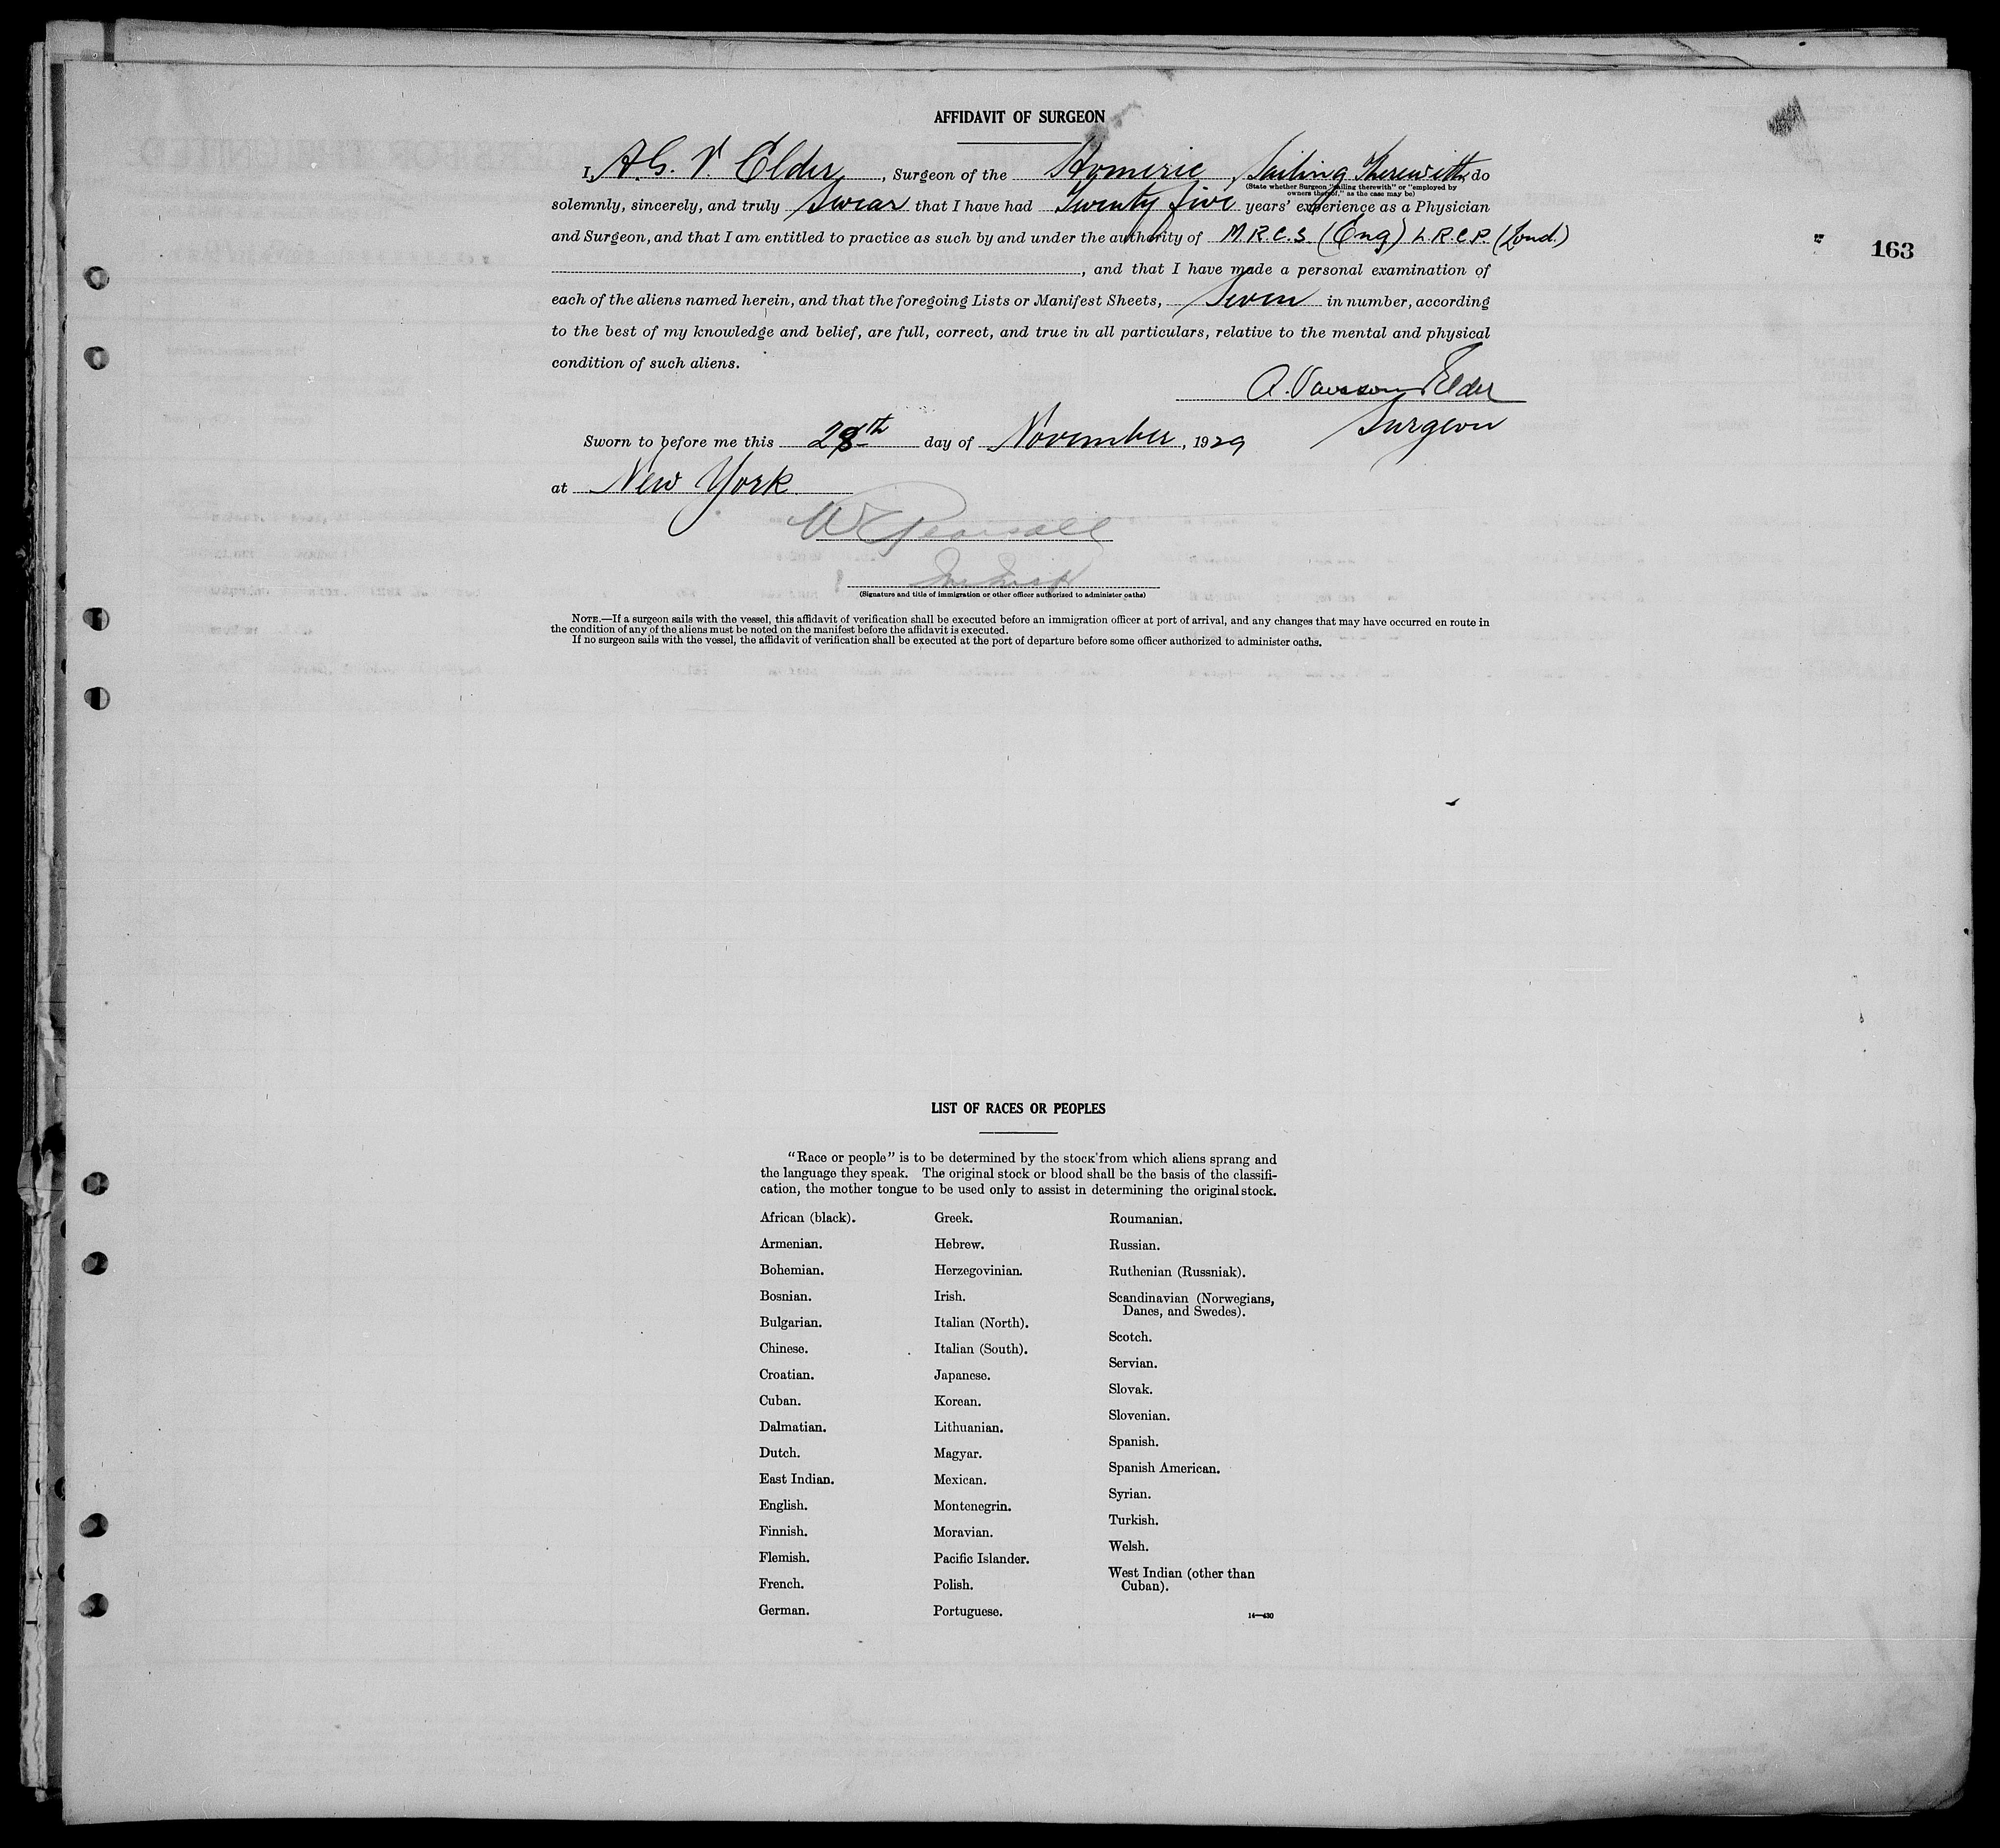 AFFIDAVIT OF SURGEON
I, A. G. V. Elder, Surgeon of the Homeric, Sailing Therewith, do
(State whether Surgeon "sailing therewith" or "employed by
owners thereof," as the case may be)
solemnly, sincerely, and truly Swear that I have had Twenty five years' experience as a Physician
and Surgeon, and that I am entitled to practice as such by and under the authority of M.R.C.S. (Eng) L.R.C.P. (Lond.)
163
, and that I have made a personal examination of
each of the aliens named herein, and that the foregoing Lists or Manifest Sheets, Seven in number, according
to the best of my knowledge and belief, are full, correct, and true in all particulars, relative to the mental and physical
condition of such aliens.
A. Elder
Surgeon
Sworn to before me this 28th day of November, 1929
at New York
W Pearsall
(Signature and title of immigration or other officer authorized to administer oaths)
NOTE.—If a surgeon sails with the vessel, this affidavit of verification shall be executed before an immigration officer at port of arrival, and any changes that may have occurred en route in
the condition of any of the aliens must be noted on the manifest before the affidavit is executed.
If no surgeon sails with the vessel, the affidavit of verification shall be executed at the port of departure before some officer authorized to administer oaths.
LIST OF RACES OR PEOPLES
"Race or people" is to be determined by the stock from which aliens sprang and
the language they speak. The original stock or blood shall be the basis of the classifi-
cation, the mother tongue to be used only to assist in determining the original stock.
African (black).
Armenian.
Bohemian.
Bosnian.
Bulgarian.
Chinese.
Croatian.
Cuban.
Dalmatian.
Dutch.
East Indian.
English.
Finnish.
Flemish.
French.
German.
Greek.
Hebrew.
Herzegovinian.
Irish.
Italian (North).
Italian (South).
Japanese.
Korean.
Lithuanian.
Magyar.
Mexican.
Montenegrin.
Moravian.
Pacific Islander.
Polish.
Portuguese.
Roumanian.
Russian.
Ruthenian (Russniak).
Scandinavian (Norwegians,
Danes, and Swedes).
Scotch.
Servian.
Slovak.
Slovenian.
Spanish.
Spanish American.
Syrian.
Turkish.
Welsh.
West Indian (other than
Cuban).
14—430